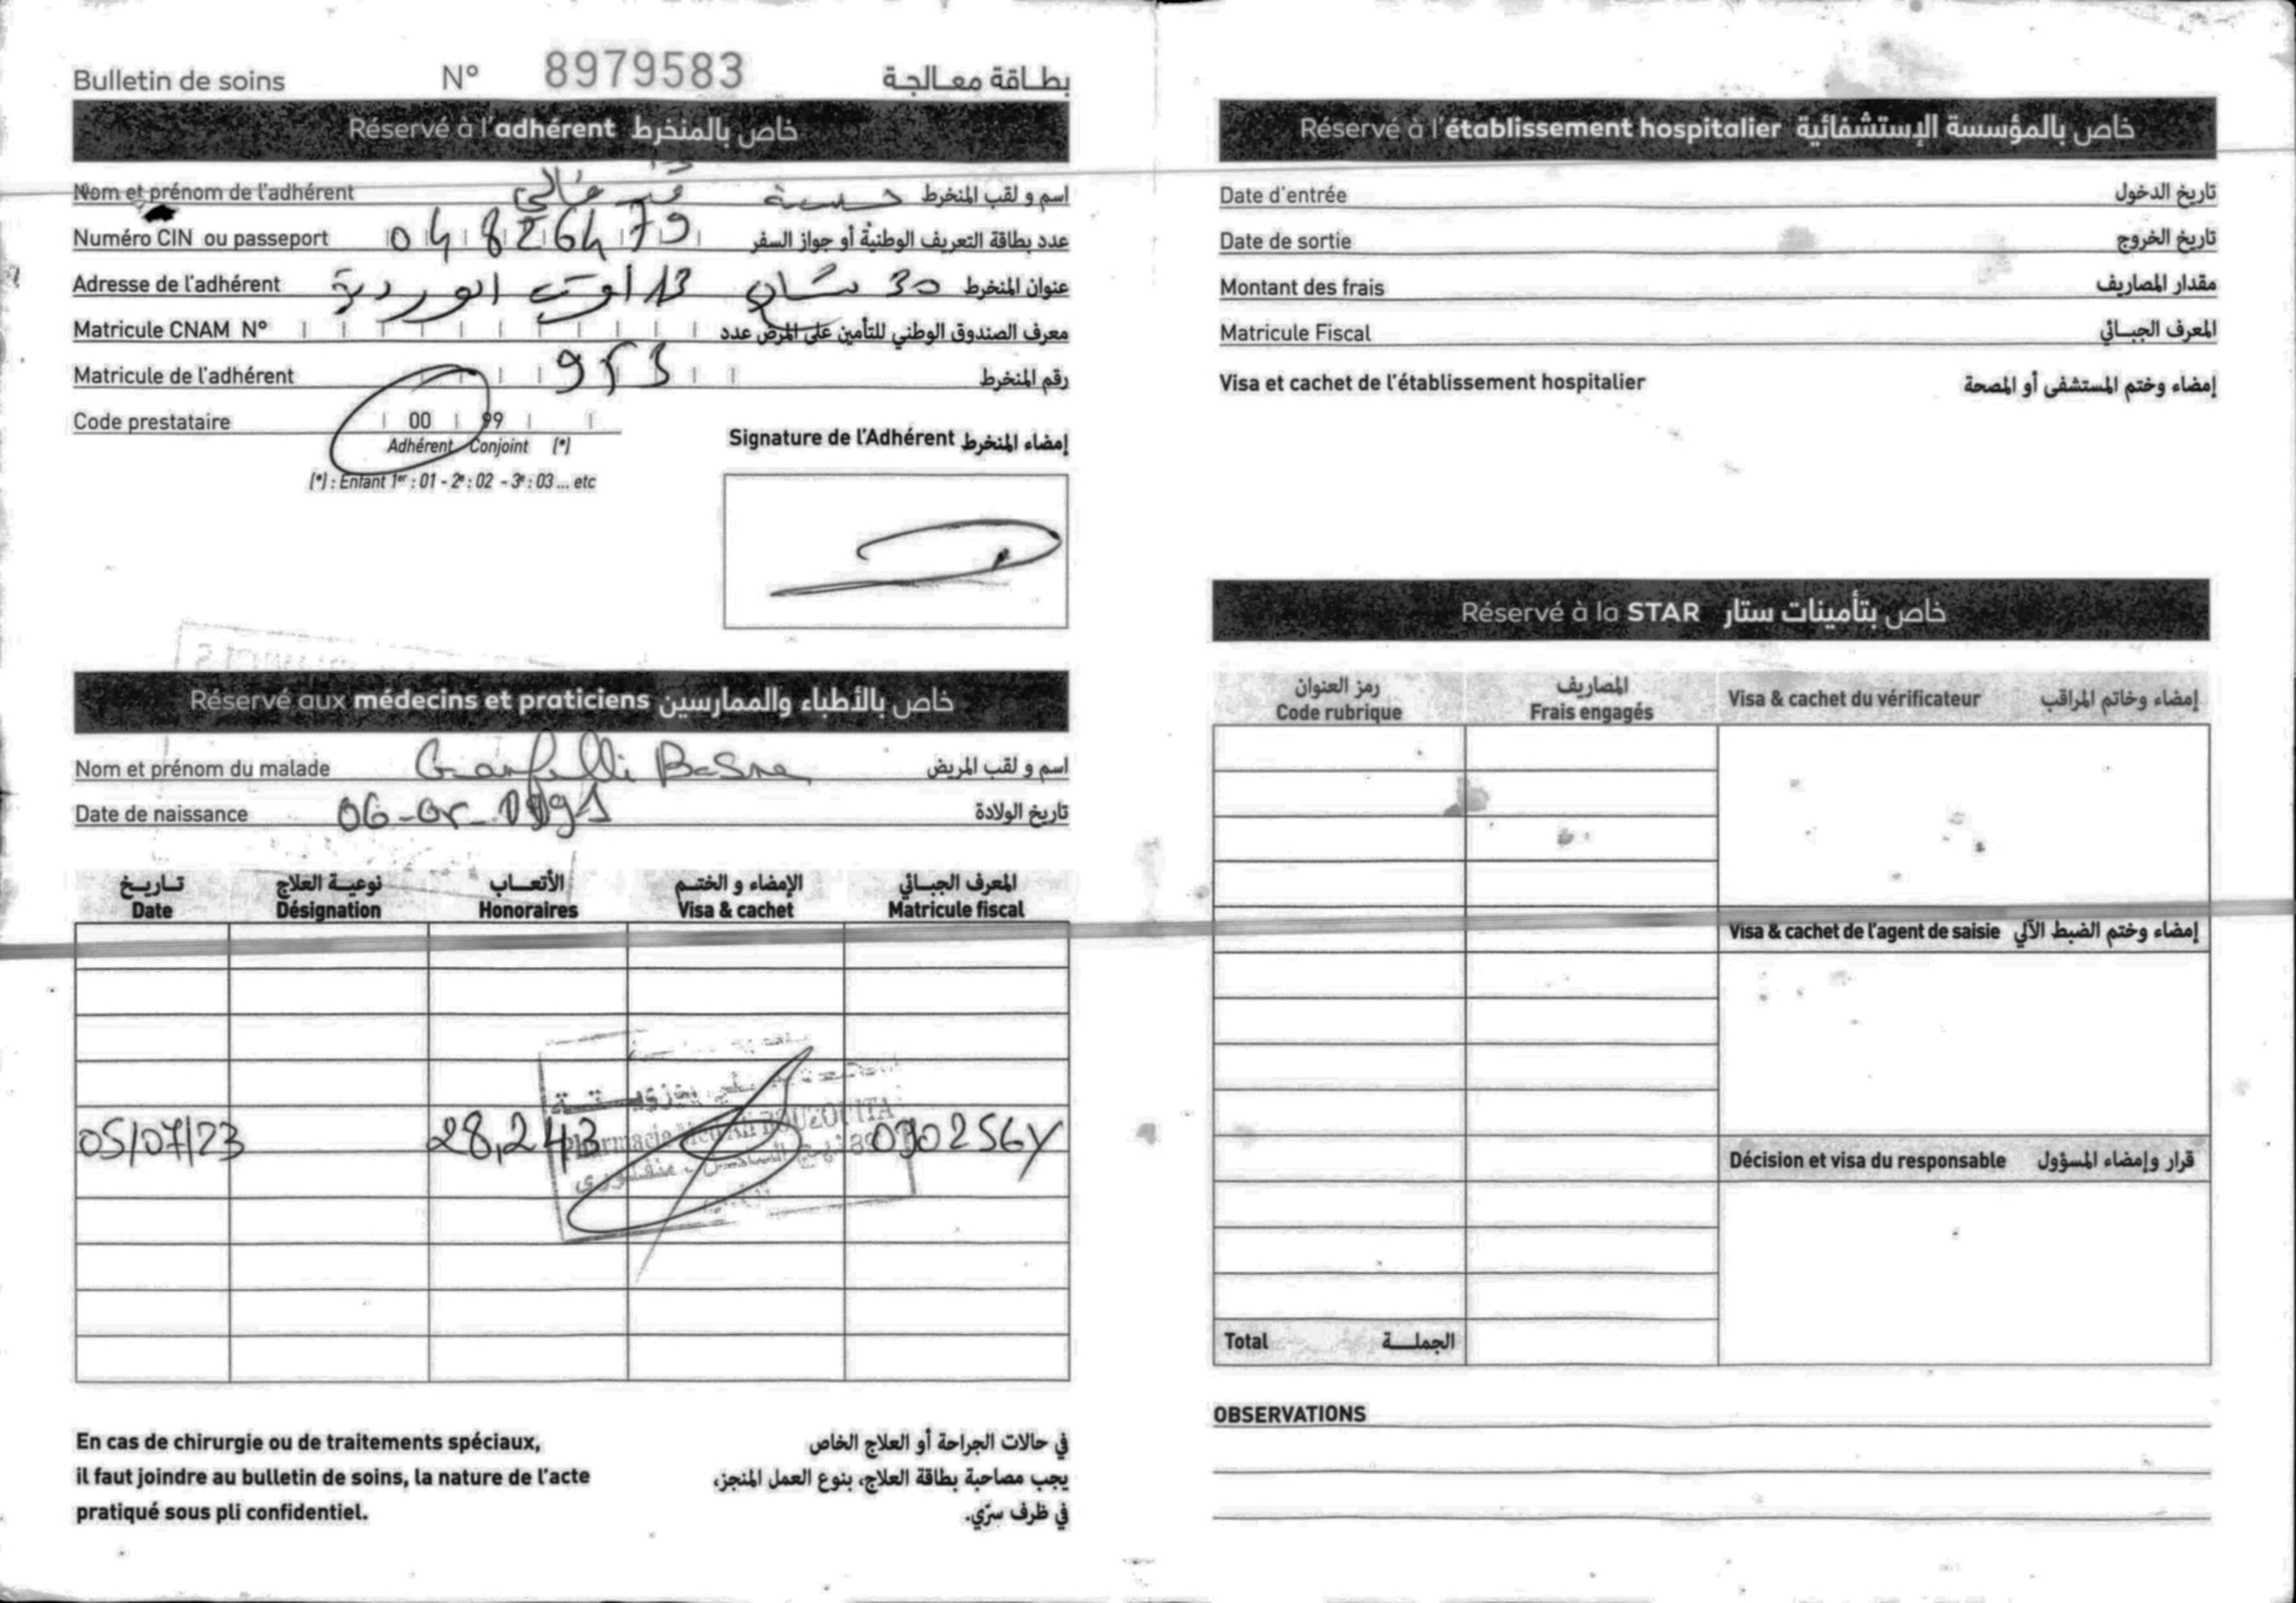 Bulletin de soins N° 8979583 بطاقة معالجة
Réservé à l'adhérent خاص بالمنخرط
Nom et prénom de l'adhérent اسم و لقب المنخرط
Numéro CIN ou passeport 04826479 عدد بطاقة التعريف الوطنية أو جواز السفر
Adresse de l'adhérent 30 13 أوت الوردية عنوان المنخرط
Matricule CNAM N° معرف الصندوق الوطني للتأمين على المرض عدد
Matricule de l'adhérent 953 رقم المنخرط
Code prestataire 00 99
Adhérent Conjoint (*)
(*) : Enfant 1er : 01 - 2e : 02 - 3e : 03 ... etc
Signature de l'Adhérent إمضاء المنخرط
Réservé aux médecins et praticiens خاص بالأطباء والممارسين
Nom et prénom du malade اسم و لقب المريض
Date de naissance تاريخ الولادة
تاريخ نوعية العلاج الأتعاب الإمضاء و الختم المعرف الجبائي
Date Désignation Honoraires Visa & cachet Matricule fiscal
05/07/23 28,243
En cas de chirurgie ou de traitements spéciaux,
il faut joindre au bulletin de soins, la nature de l'acte
pratiqué sous pli confidentiel.
في حالات الجراحة أو العلاج الخاص
يجب مصاحبة بطاقة العلاج، بنوع العمل المنجز،
في ظرف سرّي.
Réservé à l'établissement hospitalier خاص بالمؤسسة الإستشفائية
Date d'entrée تاريخ الدخول
Date de sortie تاريخ الخروج
Montant des frais مقدار المصاريف
Matricule Fiscal المعرف الجبائي
Visa et cachet de l'établissement hospitalier إمضاء وختم المستشفى أو المصحة
Réservé à la STAR خاص بتأمينات ستار
رمز العنوان المصاريف
Code rubrique Frais engagés Visa & cachet du vérificateur إمضاء وخاتم المراقب
Visa & cachet de l'agent de saisie إمضاء وختم الضبط الآلي
Décision et visa du responsable قرار وإمضاء المسؤول
Total الجملة
OBSERVATIONS